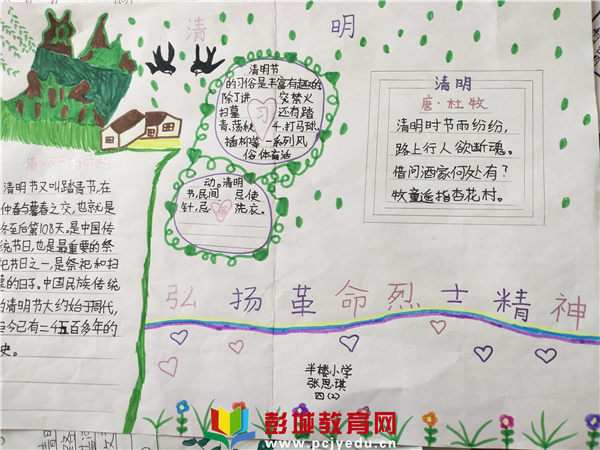 清 明
清明节
的习俗是丰富有趣的
除了讲 究禁火
扫墓 还有踏
青、荡秋 千、打马球、
插柳等 一系列风
俗体育活
习
动。清明
节,民间 忌使
针,忌 洗衣。
俗
清明
唐·杜牧
清明时节雨纷纷,
路上行人欲断魂。
借问酒家何处有?
牧童遥指杏花村。
清明节又叫踏青节,在
仲春与暮春之交,也就是
冬至后第108天。是中国传
统节日,也是最重要的祭
祀节日之一,是祭祀和扫
墓的日子。中国民族传统
的清明节大约始于周代,
距今已有二千五百多年的
历史。
弘扬革命烈士精神
半楼小学
张思琪
四(2)
彭城教育网
www.pcjyedu.cn